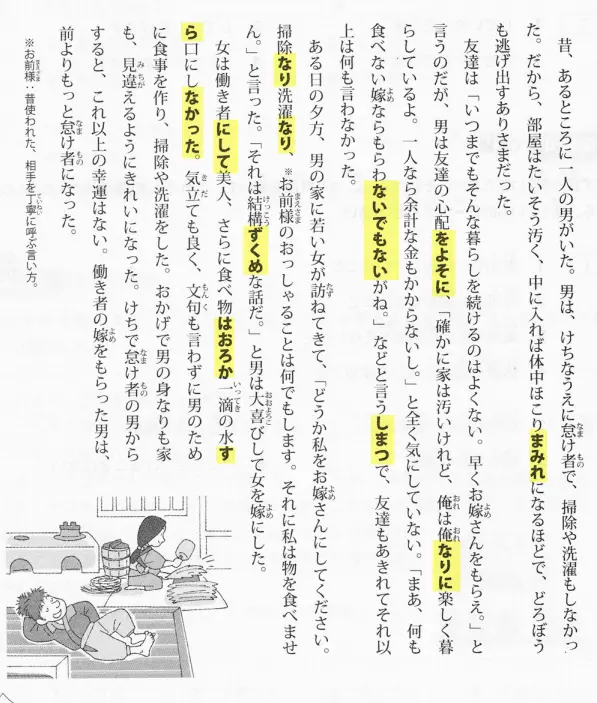 昔、あるところに一人の男がいた。男は、けちなうえに怠け者で、掃除や洗濯もしなかっ
た。だから、部屋はたいそう汚く、中に入れば体中ほこりまみれになるほどで、どろぼう
も逃げ出すありさまだった。
友達は「いつまでもそんな暮らしを続けるのはよくない。早くお嫁さんをもらえ。」と
言うのだが、男は友達の心配をよそに、「確かに家は汚いけれど、俺は俺なりに楽しく暮
らしているよ。一人なら余計な金もかからないし。」と全く気にしていない。「まあ、何も
食べない嫁ならもらわないでもないがね。」などと言うしまつで、友達もあきれてそれ以
上は何も言わなかった。
ある日の夕方、男の家に若い女が訪ねてきて、「どうか私をお嫁さんにしてください。
掃除なり洗濯なり、※お前様のおっしゃることは何でもします。それに私は物を食べませ
ん。」と言った。「それは結構ずくめな話だ。」と男は大喜びして女を嫁にした。
女は働き者にして美人、さらに食べ物はおろか一滴の水す
ら口にしなかった。気立ても良く、文句も言わずに男のため
に食事を作り、掃除や洗濯をした。おかげで男の身なりも家
も、見違えるようにきれいになった。けちで怠け者の男から
すると、これ以上の幸運はない。働き者の嫁をもらった男は、
前よりもっと怠け者になった。
※お前様：昔使われた、相手を丁寧に呼ぶ言い方。